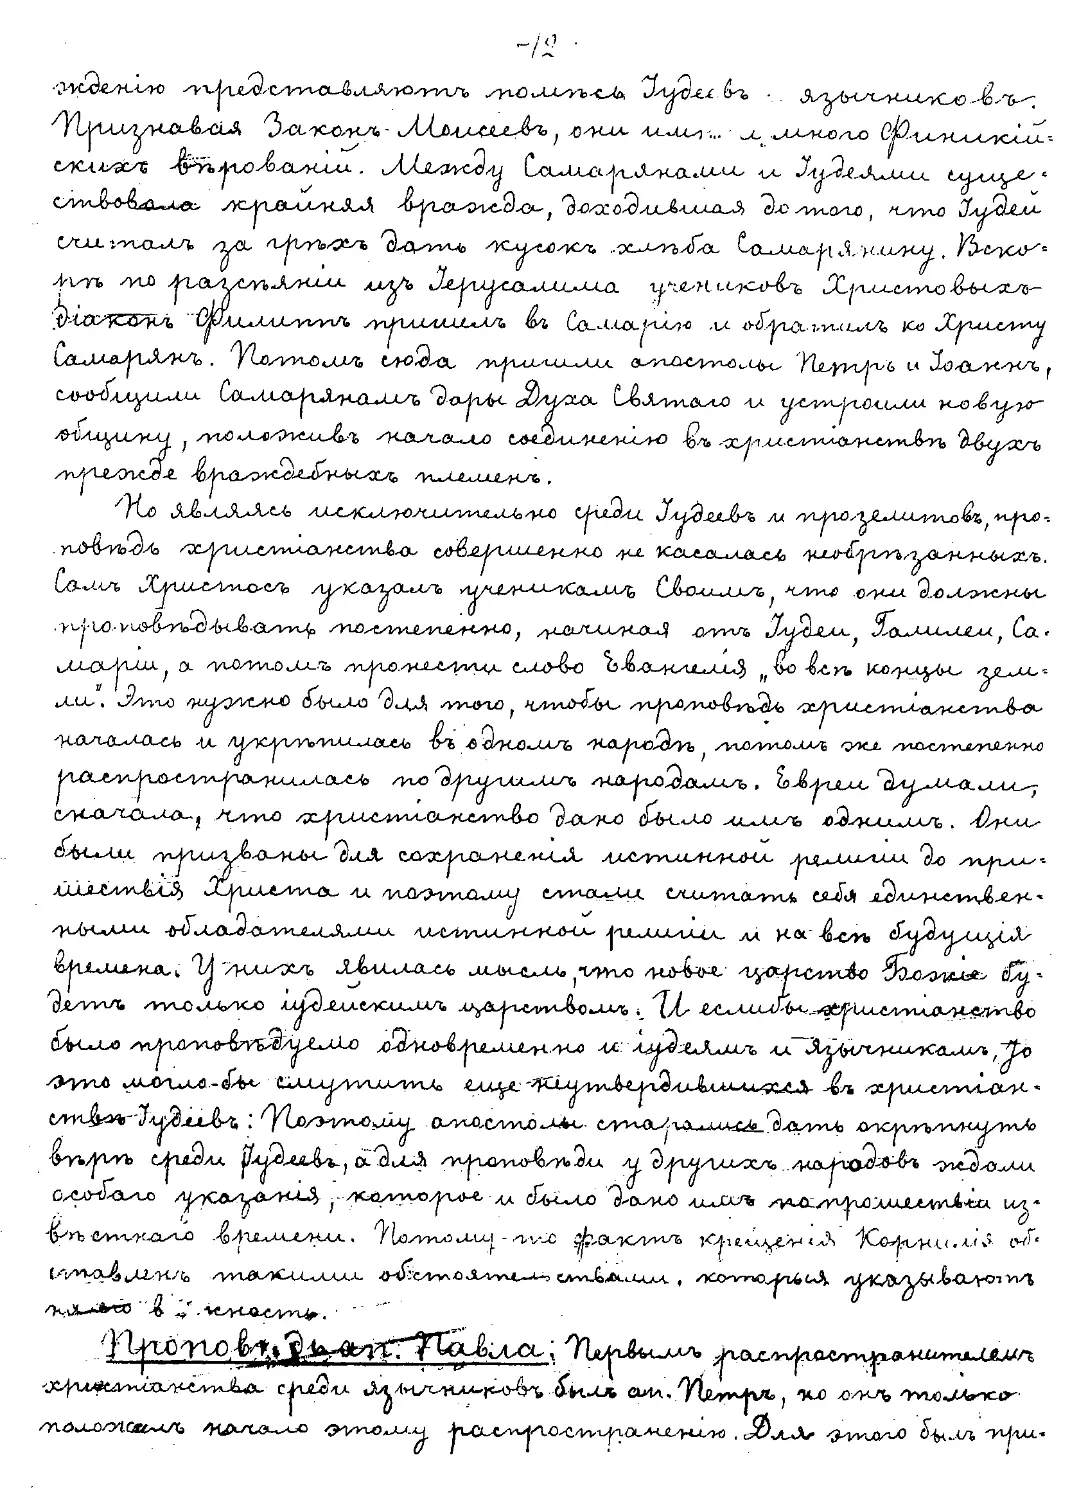 -12-
жденію представляютъ помѣсь Іудеевъ язычниковъ.
Признавая Законъ Моисеевъ, они много Финикій-
скихъ вѣрованій. Между Самарянами и Іудеями суще-
ствовала крайняя вражда, доходившая до того, что Іудей
считалъ за грѣхъ дать кусокъ хлѣба Самарянину. Вско-
рѣ по разсѣяніи изъ Іерусалима учениковъ Христовыхъ
діаконъ Филиппъ пришелъ въ Самарію и обратилъ ко Христу
Самарянъ. Потомъ сюда пришли апостолы Петръ и Іоаннъ,
сообщили Самарянамъ дары Духа Святаго и устроили новую
общину, положивъ начало соединенію въ христіанствѣ двухъ
прежде враждебныхъ племенъ.
Но являясь исключительно среди Іудеевъ и прозелитовъ, про-
повѣдь христіанства совершенно не касалась необрѣзанныхъ.
Самъ Христосъ указалъ ученикамъ Своимъ, что они должны
проповѣдывать постепенно, начиная отъ Іудеи, Галилеи, Са-
маріи, а потомъ пронести слово Евангелія „во всѣ концы зем-
ли". Это нужно было для того, чтобы проповѣдь христіанства
началась и укрѣпилась въ одномъ народѣ, потомъ же постепенно
распространилась по другимъ народамъ. Евреи думали,
сначала, что христіанство дано было имъ однимъ. Они
были призваны для сохраненія истинной религіи до при-
шествія Христа и поэтому стали считать себя единствен-
ными обладателями истинной религіи и на всѣ будущія
времена. У нихъ явилась мысль, что новое царство Божіе бу-
детъ только іудейскимъ царствомъ. И еслибы христіанство
было проповѣдуемо одновременно и іудеямъ и язычникамъ, то
это могло-бы смутить еще неутвердившихся въ христіан-
ствѣ Іудеевъ: Поэтому апостолы старались дать окрѣпнуть
вѣрѣ среди Іудеевъ, а для проповѣди у другихъ народовъ ждали
особаго указанія, которое и было дано имъ по прошествіи из-
вѣстнаго времени. Потому-то фактъ крещенія Корнилія об-
ставленъ такими обстоятельствами, которыя указываютъ
на его
Проповѣдь ап. Павла: Первымъ распространителемъ
христіанства среди язычниковъ былъ ап. Петръ, но онъ только
положилъ начало этому распространенію. Для этого былъ при-